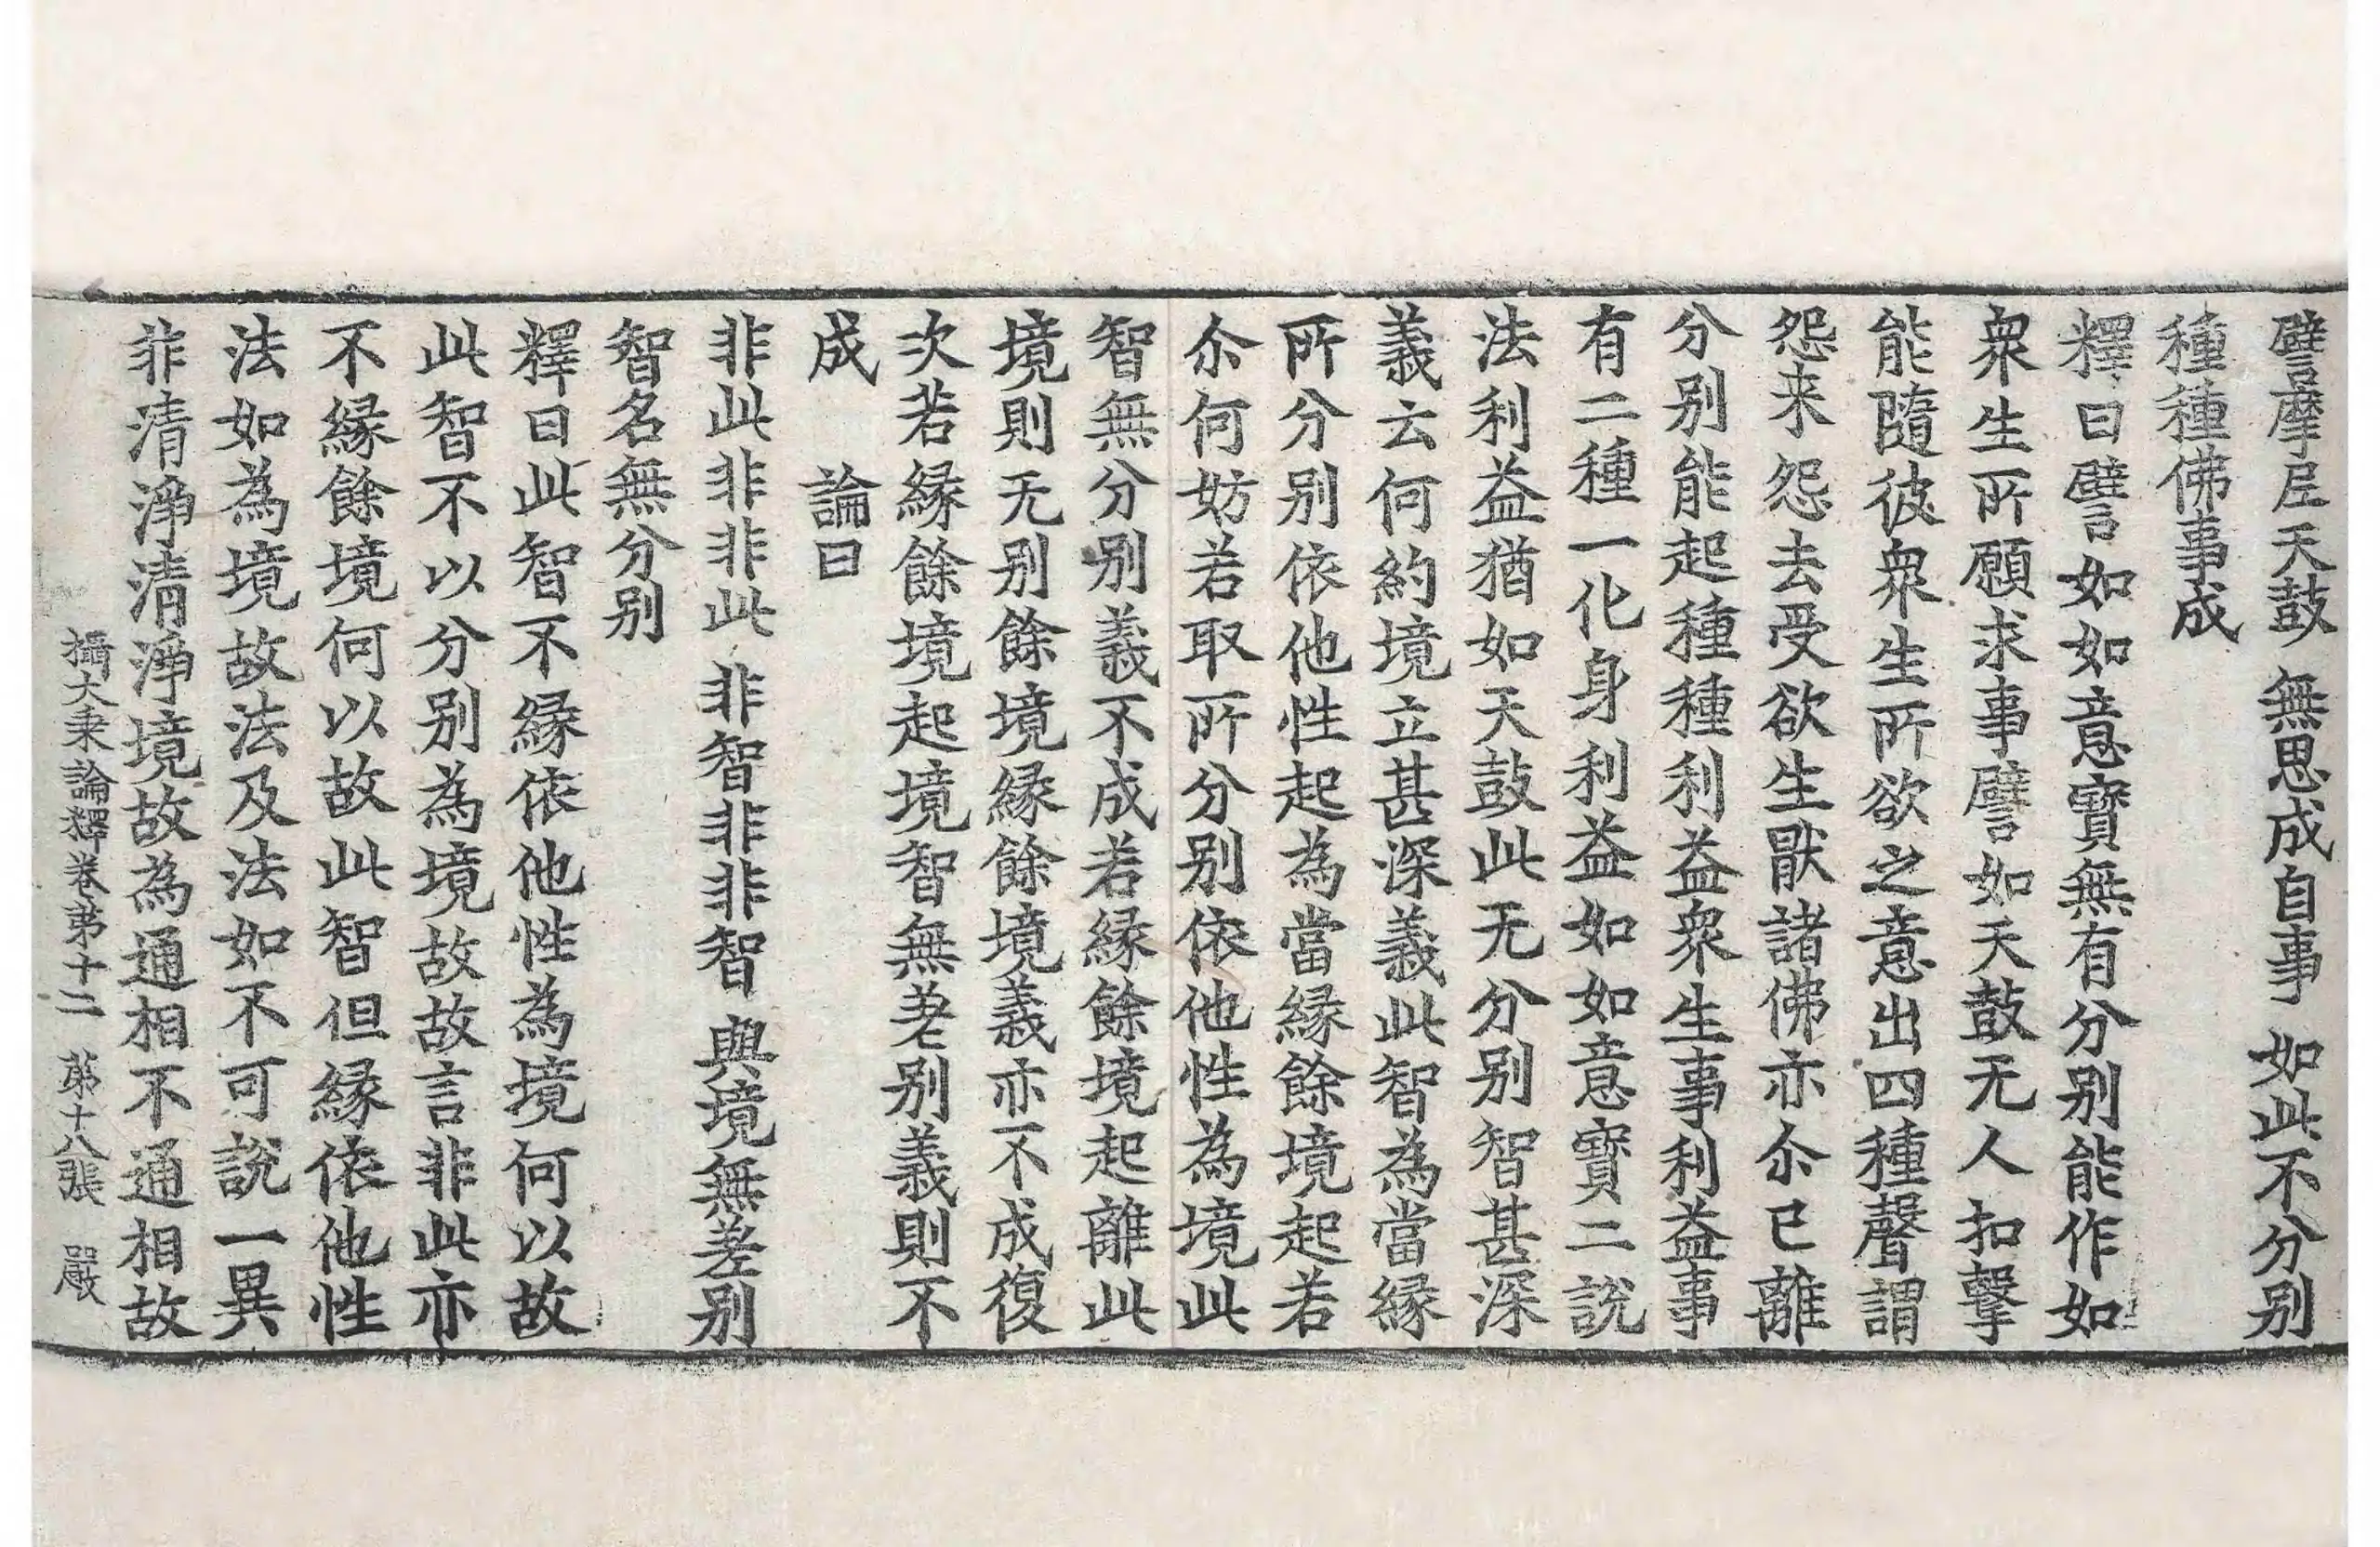 譬摩尼天鼓 無思成自事 如此不分别
種種佛事成
釋曰譬如如意寳無有分别能作如
衆生所願求事譬如天鼓无人扣擊
能隨彼衆生所欲之意出四種聲謂
怨来怨去受欲生猒諸佛亦尒已離
分别能起種種利益衆生事利益事
有二種一化身利益如如意寳二說
法利益猶如天鼓此无分别智甚深
義云何約境立甚深義此智為當縁
所分别依他性起為當縁餘境起若
尒何妨若取所分别依他性為境此
智無分别義不成若縁餘境起離此
境則无别餘境縁餘境義亦不成復
次若縁餘境起境智無差别義則不
成 論曰
非此非非此 非智非非智 與境無差别
智名無分别
釋曰此智不縁依他性為境何以故
此智不以分别為境故故言非此亦
不縁餘境何以故此智但縁依他性
法如為境故法及法如不可說一異
非清淨清淨境故為通相不通相故
攝大乗論釋卷苐十二 苐十八張 嚴